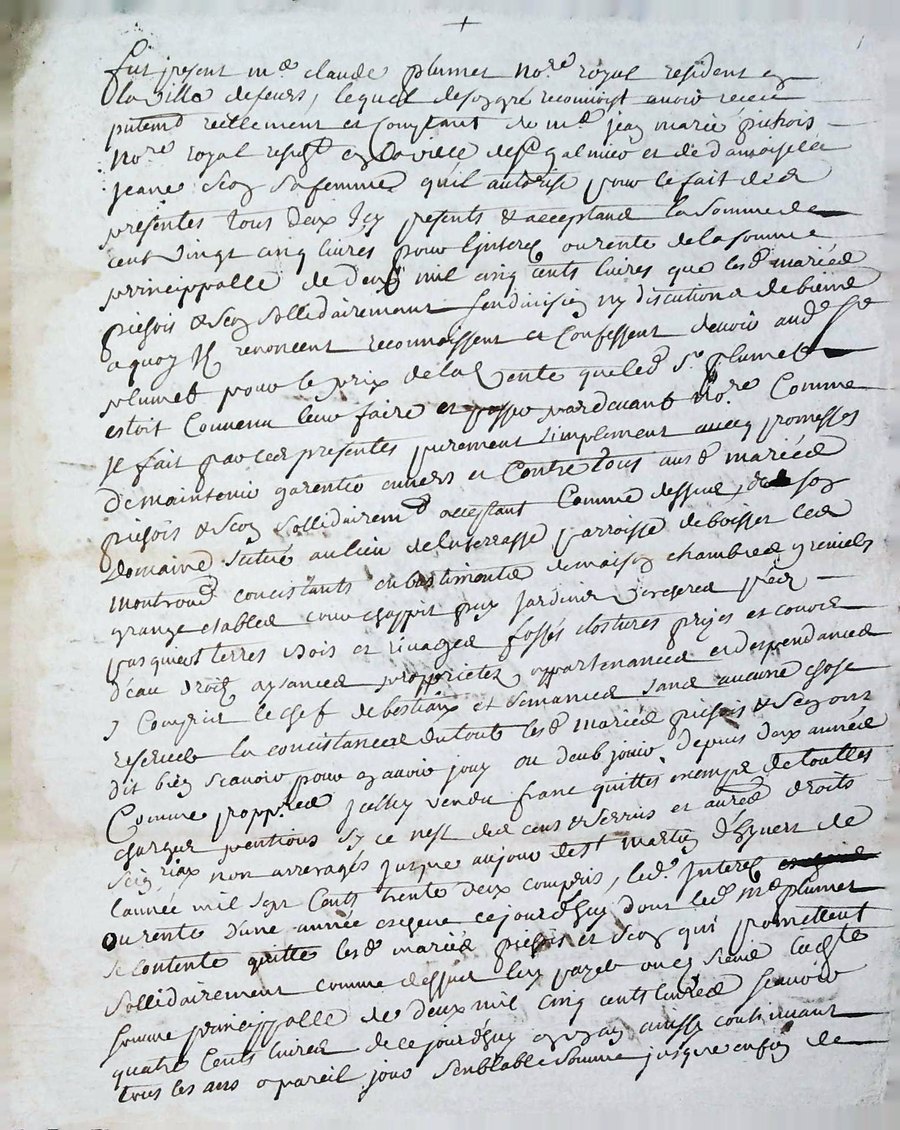 +
Fut present m.e claude plumet no.re royal resident en
la ville de feurs, lequel de son gré reconnoist avoir receu
putem.t reellement et comptant de m.e jean marie pichois
no.re royal resid.t en la ville de s.t galmier et de damoiselle
jeane scoy sa femme qu'il autorise pour le fait des
presentes tous deux icy presents & acceptans la somme de
cent vingt cinq livres pour l'interes ou rente de la somme
principalle de deux mil cinq cents livres que lesd. mariés
pichois & scoy sollidairement sans division ny discution de biens
a quoy ils renoncent reconnoissent et confessent devoir aud. s.r
plumet pour le prix de la vente que led. s.r plumet
estoit convenu leur faire et passer pardevant no.re comme
il fait par ces presentes purement simplement avec promesses
de maintenir garentir envers et contre tous ausd. mariés
pichois & scoy sollidairem.t acceptant comme dessus, de son
domaine situé au lieu de la terrasse parroisse de boisset les
montrond concistants en bastiments de maison chambres greniers
grange estables cour chappit puy jardins vercheres prés
pasquiers terres bois et rivages fossés clostures prizes et cours
d'eau droits aysances proprietes appartenances et despendances
y compris le chef de bestiaux et semances sans aucune chose
reserver la concistance du tout lesd. mariés pichois & scoy ont
dit bien scavoir pour en avoir jouy ou deub jouir depuis deux années
comme propp.res icelluy vendu franc quitte exempt de touttes
charges pentions sy ce nest des cens & servis et autres droits
seig.riaux non arreragés jusque aujour de s.t martin d'hyvert de
l'année mil sept cents trente deux compris, led. interes
ou rente d'une année escheue ce jourdhuy dont led. m.e plumet
se contente quitte lesd. mariés pichois et scoy qui promettent
sollidairement comme dessus luy payer ou es siens lad.te
somme principalle de deux mil cinq cents livres scavoir
quatre cents livres de ce jourdhuy en un an ainsy continuant
tous les ans a pareil jour semblable somme jusque en fin de